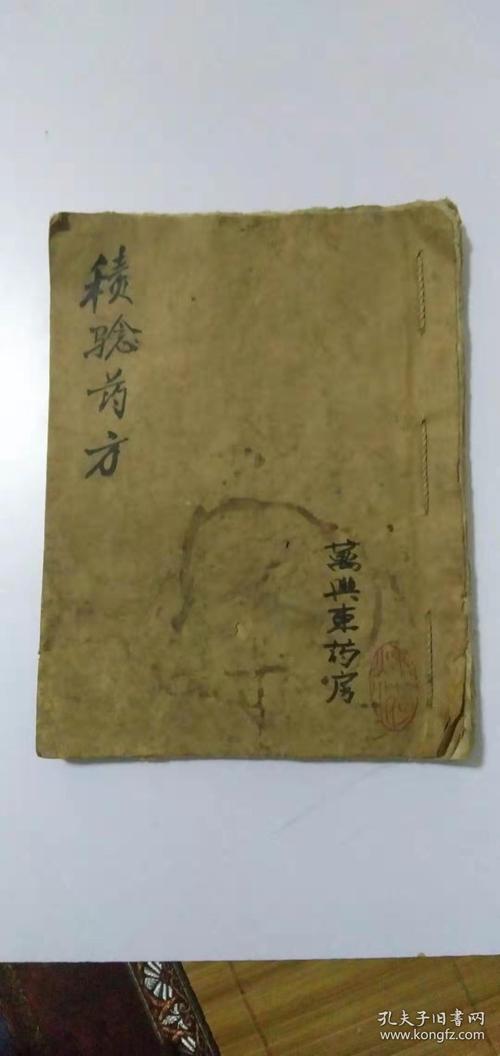 積验药方
萬興東药房
孔夫子旧書网
www.kongfz.com